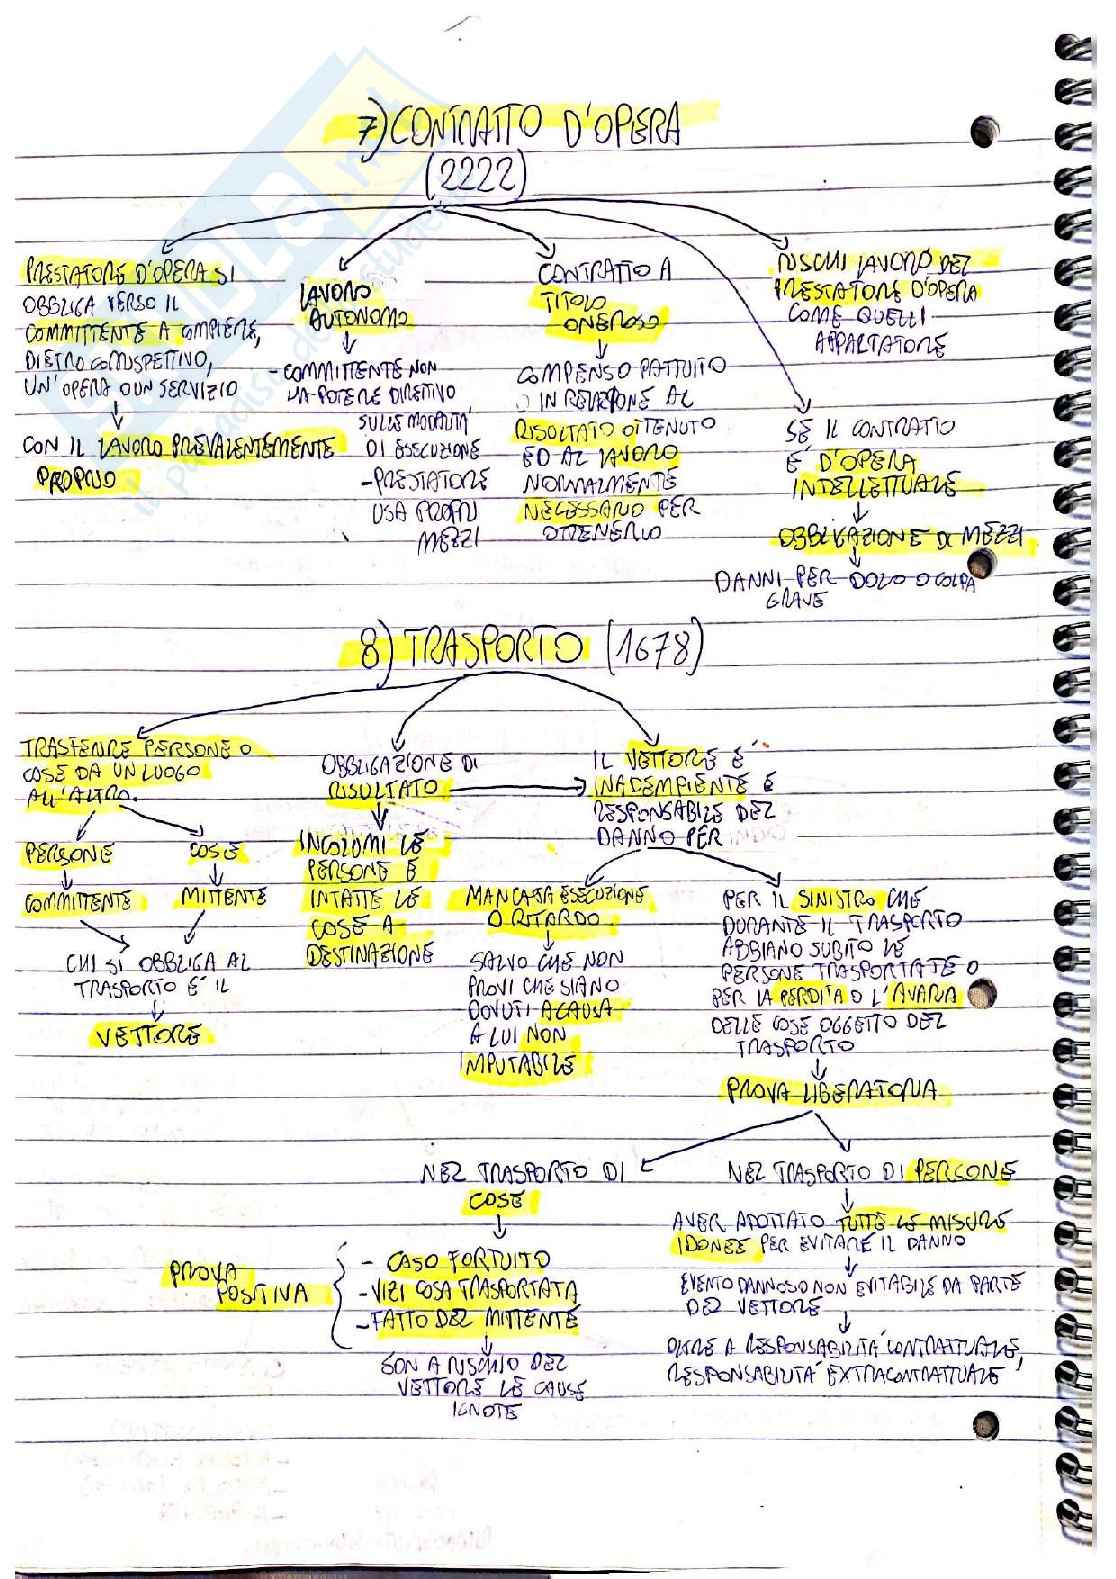 7) CONTRATTO D'OPERA
(2222)
PRESTATORE D'OPERA SI
OBBLIGA VERSO IL
COMMITTENTE A COMPIERE,
DIETRO CORRISPETTIVO,
UN'OPERA O UN SERVIZIO
CON IL LAVORO PREVALENTEMENTE
PROPRIO
LAVORO
AUTONOMO
- COMMITTENTE NON
HA POTERE DIRETTIVO
SULLE MODALITÀ
DI ESECUZIONE
- PRESTATORE
USA PROPRI
MEZZI
CONTRATTO A
TITOLO
ONEROSO
COMPENSO PATTUITO
IN RELAZIONE AL
RISULTATO OTTENUTO
ED AL LAVORO
NORMALMENTE
NECESSARIO PER
OTTENERLO
RISCHI LAVORO DEL
PRESTATORE D'OPERA
COME QUELLI
APPALTATORE
SE IL CONTRATTO
È D'OPERA
INTELLETTUALE
OBBLIGAZIONE DI MEZZI
DANNI PER DOLO O COLPA
GRAVE
8) TRASPORTO (1678)
TRASFERIRE PERSONE O
COSE DA UN LUOGO
ALL'ALTRO.
PERSONE
COSE
COMMITTENTE
MITTENTE
CHI SI OBBLIGA AL
TRASPORTO È IL
VETTORE
OBBLIGAZIONE DI
RISULTATO
INCOLUMI LE
PERSONE E
INTATTE LE
COSE A
DESTINAZIONE
IL VETTORE È
INADEMPIENTE E
RESPONSABILE DEL
DANNO PER
MANCATA ESECUZIONE
O RITARDO
SALVO CHE NON
PROVI CHE SIANO
DOVUTI A CAUSA
A LUI NON
IMPUTABILE
PER IL SINISTRO CHE
DURANTE IL TRASPORTO
ABBIANO SUBITO LE
PERSONE TRASPORTATE O
PER LA PERDITA O L'AVARIA
DELLE COSE OGGETTO DEL
TRASPORTO
PROVA LIBERATORIA
NEL TRASPORTO DI
COSE
PROVA
POSITIVA
- CASO FORTUITO
- VIZI COSA TRASPORTATA
- FATTO DEL MITTENTE
SON A RISCHIO DEL
VETTORE LE CAUSE
IGNOTE
NEL TRASPORTO DI PERSONE
AVER ADOTTATO TUTTE LE MISURE
IDONEE PER EVITARE IL DANNO
EVENTO DANNOSO NON EVITABILE DA PARTE
DEL VETTORE
OLTRE A RESPONSABILITÀ CONTRATTUALE,
RESPONSABILITÀ EXTRACONTRATTUALE